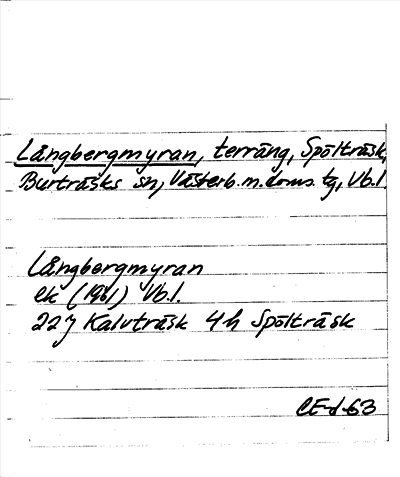 Långbergmyran, terräng, Spölträsk,
Burträsks sn, Västerb. m. doms. tg, Vb.l.
Långbergmyran
ek (1961) Vb.l.
22J Kalvträsk 4h Spölträsk
CE-d-63